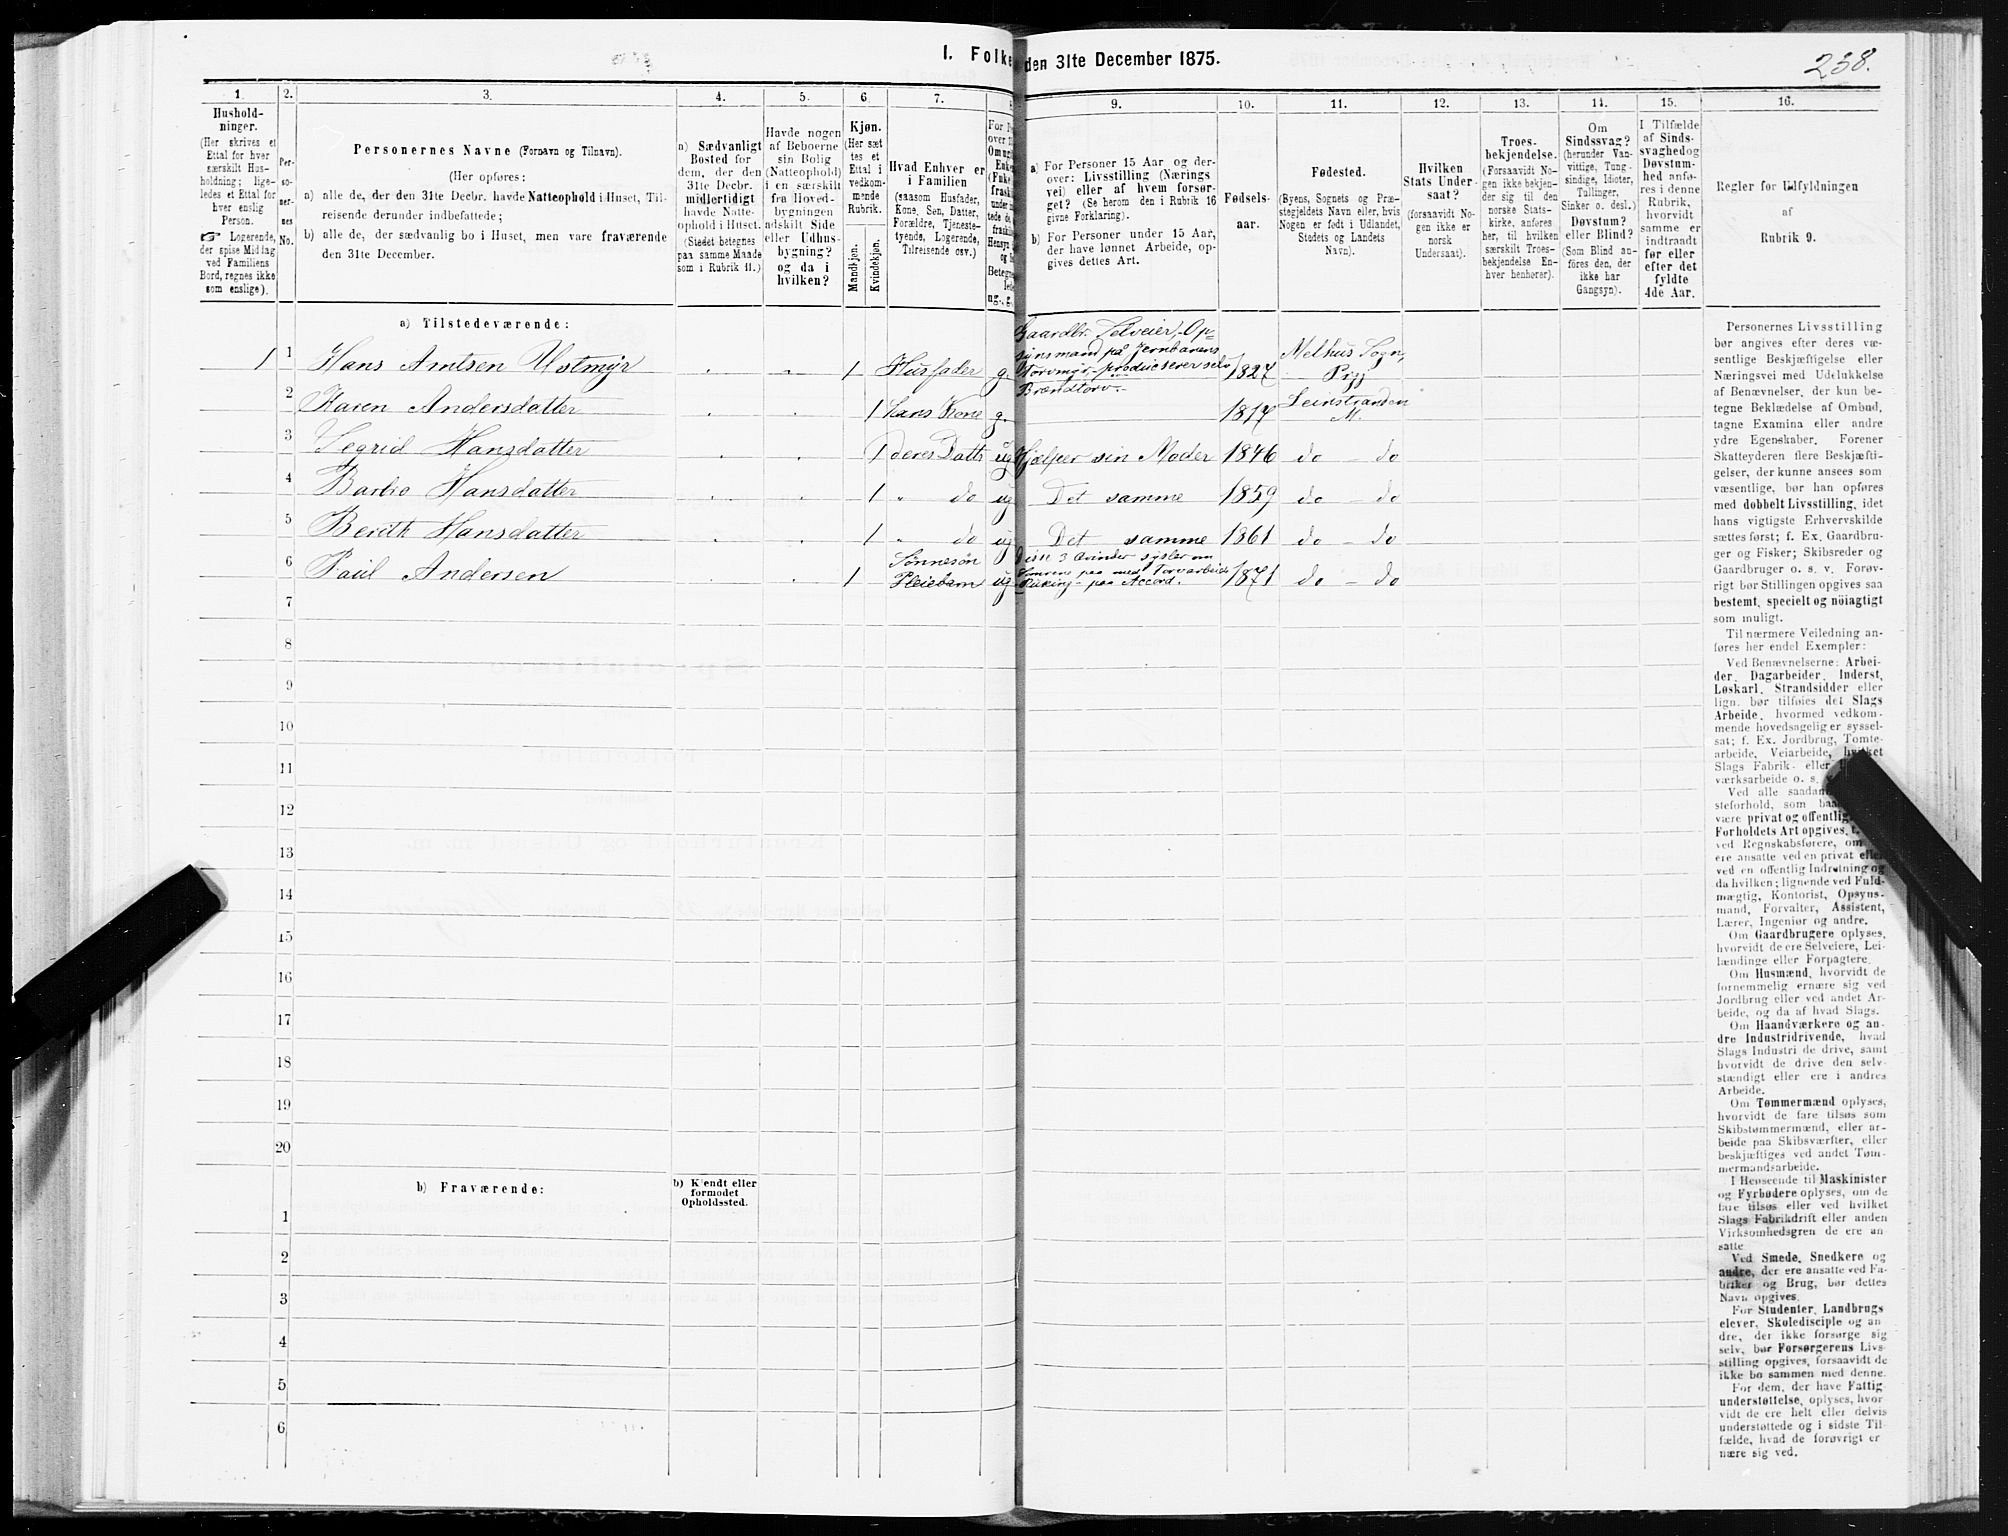 I. Folke
den 31te December 1875.
238.
1.
2.
3.
4.
5.
6
7.
8
9.
10.
11.
12.
13.
14.
15.
16.
Hushold-
ninger.
(Her skrives et
Ettal for hver
særskilt Hus-
holdning; lige-
ledes et Ettal for
hver enslig
Person.
☞ Logerende,
der spise Middag
ved Familiens
Bord, regnes ikke
som enslige).
Per-
so-
ner-
nes
No.
Personernes Navne (Fornavn og Tilnavn).
(Her opføres:
a) alle de, der den 31te Decbr. havde Natteophold i Huset, Til-
reisende derunder indbefattede;
b) alle de, der sædvanlig bo i Huset, men vare fraværende
den 31te December.
a) Sædvanligt
Bosted for
dem, der den
31te Decbr.
midlertidigt
havde Natte-
ophold i Huset.
(Stedet betegnes
paa samme Maade
som i Rubrik 11.)
Havde nogen
af Beboerne
sin Bolig
(Natteophold)
i en særskilt
fra Hoved-
bygningen
adskilt Side
eller Udhus-
bygning?
og da i
hvilken?
Kjøn.
(Her sæt
tes et
Ettal i
vedkom-
mende
Rubrik.
Mandkjøn.
Kvindekjøn.
Hvad Enhver er
i Familien
(saasom Husfader,
Kone, Søn, Datter,
Forældre, Tjeneste-
tyende, Logerende,
Tilreisende osv.)
For P
over 1
Om ug
Enke
(Enke
frask
under
tede de
fraskil
Hensyn
og S
Betegne
lede
ug., g.
a) For Personer 15 Aar og der-
over: Livsstilling (Nærings
vei) eller af hvem forsør-
get? (Se herom den i Rubrik 16
givne Forklaring).
b) For Personer under 15 Aar,
der have lønnet Arbeide, op-
gives dettes Art.
Fødsels-
aar.
Fødested.
(Byens, Sognets og Præ-
stegjeldets Navn eller, hvis
Nogen er født i Udlandet,
Stedets og Landets
Navn).
Hvilken
Stats Under-
saat?
(forsaavidt No-
gen ikke er
norsk
Undersaat).
Troes-
bekjendelse.
(Forsaavidt No-
gen ikke bekjen-
der sig til den
norske Stats-
kirke, anføres
her, til hvilken
særskilt Troes-
bekjendelse En-
hver henhører).
Om
Sindssvag?
(herunder Van-
vittige, Tung-
sindige, Idioter,
Tullinger,
Sinker o. desl.)
Døvstum?
eller Blind?
(Som Blind an-
føres den, der
ikke har
Gangsyn).
I Tilfælde
af Sinds-
svaghed og
Døvstum-
hed anfø-
res i denne
Rubrik,
hvorvidt
samme er
indtraadt
før eller
efter det
fyldte
4de Aar.
Regler før Udfyldningen
af
Rubrik 9.
a) Tilstedeværende:
1 1 Hans Arntsen Ustmyr 1 Husfader g. Gaardbr. Selveier, Op-
synsmand på Jernbanens
Torvmyr, produiserer selv
Brændtorv. 1827 Melhus Sogn,
Prgj
2 Karen Andersdatter 1 hans Kone g. 1817 Leinstranden
M.
3 Segrid Hansdatter 1 deres Datts ug Hjelper sin Moder 1846 do - do
4 Barbro Hansdatter 1 " do ug Det samme 1859 do - do
5 Berith Hansdatter 1 " do ug Det samme 1861 do - do
6 Paul Andersen 1 Sønnesøn
Pleiebarn ug Disse 3 Qvinder sysler om
Somrene paa med Torvarbeide
Rüking - paa Accord. 1871 do - do
7
8
9
10
11
12
13
14
15
16
17
18
19
20
b) Fraværende:
b) Kjendt eller
formodet
Opholdssted.
1
2
3
4
5
6
Personernes Livsstilling
bør angives efter deres væ-
sentlige Beskjæftigelse eller
Næringsvei med Udelukkelse
af Benævnelser, der kun be-
tegne Beklædelse af Ombud,
tagne Examina eller andre
ydre Egenskaber. Forener
Skatteyderen flere Beskjæfti-
gelser, der kunne ansees som
væsentlige, bør han opføres
med dobbelt Livsstilling, idet
hans vigtigste Erhvervskilde
sættes først; f. Ex. Gaardbru-
ger og Fisker; Skibsreder og
Gaardbruger o. s. v. Forøv-
rigt bør Stillingen opgives saa
bestemt, specielt og nöiagtigt
som muligt.
Til nærmere Veiledning an-
føres her endel Exempler:
Ved Benævnelserne: Arbei-
der, Dagarbeider, Inderst,
Løskarl, Strandsidder eller
lign. bør tilføies det Slags
Arbeide, hvormed vedkom-
mende hovedsagelig er syssel-
sat; f. Ex. Jordbrug, Tomte-
arbeide, Veiarbeide, hvilket
Slags Fabrik- eller
værksarbeide o. s.
Ved alle saadan
steforhold, som baa
være privat og offentlig
Forholdets Art opgives, t.
ved Regnskabsførere, om
ere ansatte ved en privat eller
ved en offentlig Indretning og
da hvilken; lignende ved Fuld-
mægtig, Kontorist, Opsyns-
mand, Forvalter, Assistent,
Lærer, Ingeniør og andre.
Om Gaardbrugere oplyses,
hvorvidt de ere Selveiere, Lei-
lændinge eller Forpagtere.
Om Husmænd, hvorvidt de
fornemmelig ernære sig ved
Jordbrug eller ved andet Ar-
beide, og da af hvad Slags.
Om Haandværkere og an-
dre Industridrivende, hvad
Slags Industri de drive, samt
hvorvidt de drive den selv-
stændigt eller ere i andres
Arbeide.
Om Tømmermænd oplyses,
hvorvidt de fare tilsøs som
Skibstømmermænd, eller ar-
beide paa Skibsværfter, eller
beskjæftiges ved andet Tøm-
mermandsarbeide.
I Henseende til Maskinister
og Fyrbødere oplyses, om de
fare tilsøs eller ved hvilket
Slags Fabrikdrift eller anden
Virksomhedsgren de ere an
satte
Ved Smede, Snedkere og
andre, der ere ansatte ved Fa-
briker og Brug, bør dettes
Navn opgives.
For Studenter, Landbrugs
elever, Skoledisciple og an
dre, der ikke forsørge sig
selv, bør Forsørgerens Livs-
stilling opgives, forsaavidt de
ikke bo sammen med denne.
For dem, der have Fattig
understøttelse, oplyses, hvor
vidt de ere helt eller delvis
understøttede og i sidste Til-
fælde, hvad de forøvrigt er
nære sig ved.